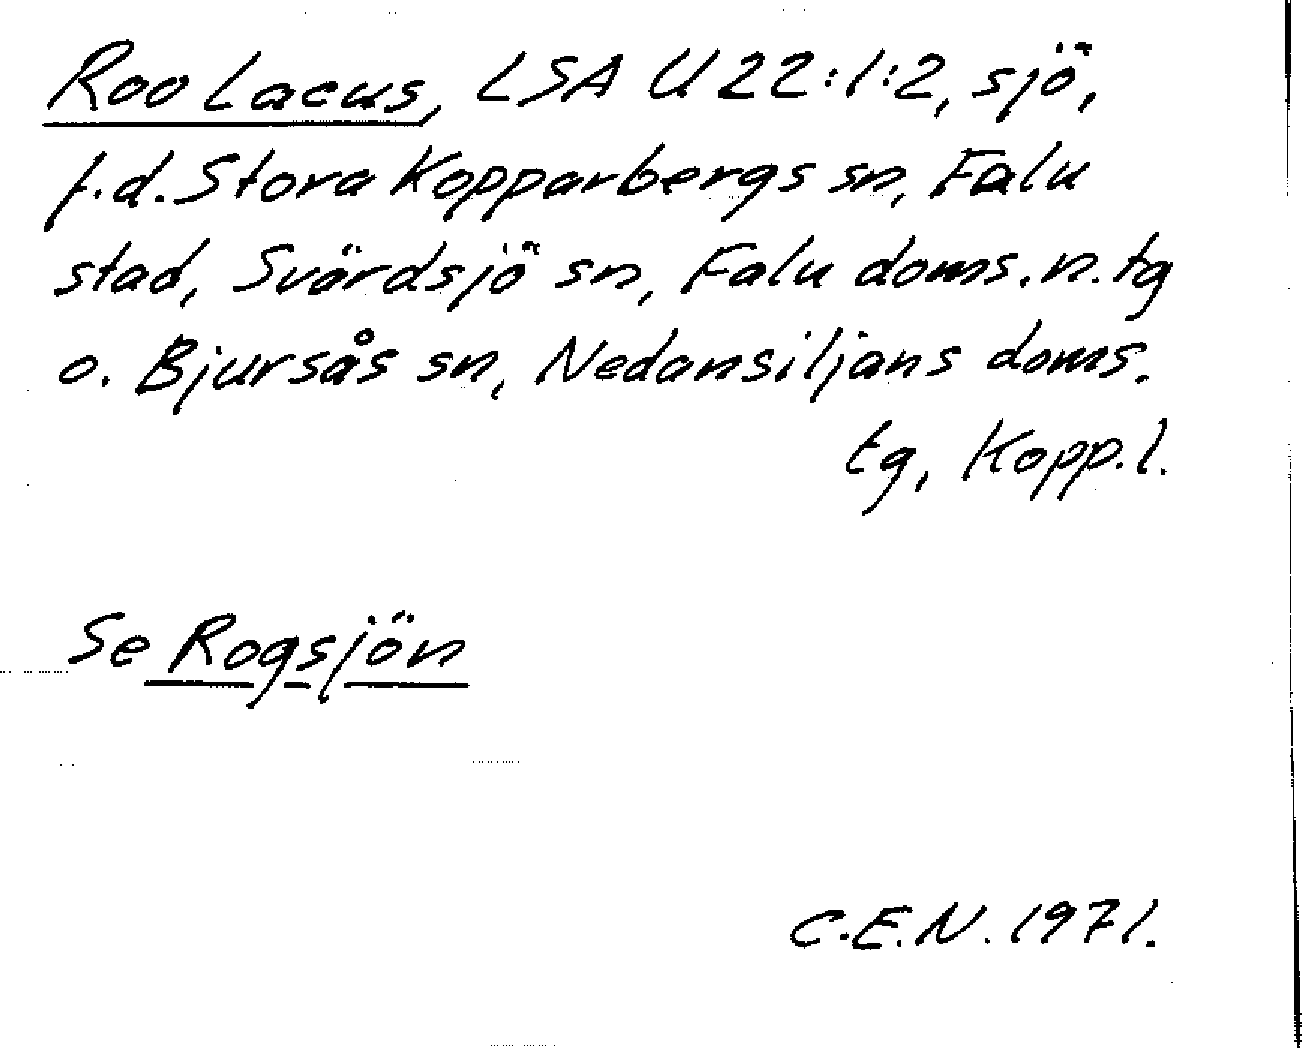 Roo Lacus, LSA U 22:1:2, sjö,
f.d. Stora Kopparbergs sn, Falu
stad, Svärdsjö sn, Falu doms. n. tg
o. Bjursås sn, Nedansiljans doms.
tg, Kopp. l.
Se Rogsjön
C.E.N. 1971.